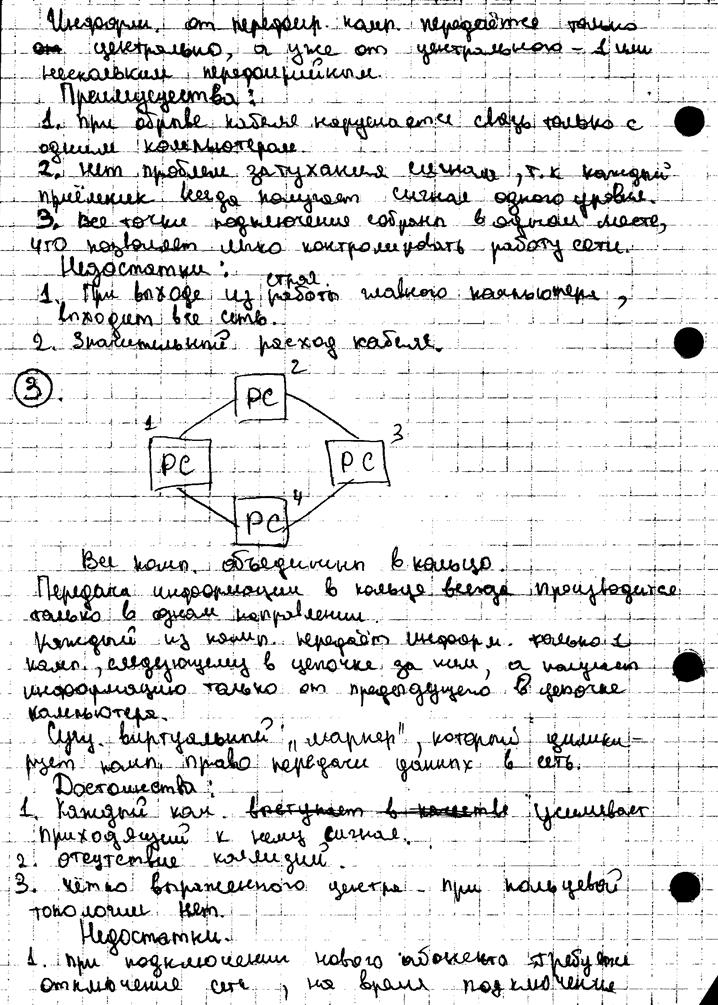 Информ. от перефер. комп. передаётся только
центрально, а уже от центрального – 1 или
нескольким переферийным.
Преимущества:
1. При обрыве кабеля нарушается связь только с
одним компьютером.
2. Нет проблем затухания сигнала, т.к каждый
приёмник всегда получает сигнал одного уровня.
3. Все точки подключения собраны в одном месте,
что позволяет легко контролировать работу сети.
Недостатки:
строя
1. При выходе из работы главного компьютера,
выходит вся сеть.
2. Значительный расход кабеля.
3.
2
PC
1
PC
3
PC
4
PC
Все комп. объединены в кольцо.
Передача информации в кольце всегда производится
только в одном направлении.
Каждый из комп. передаёт информ. только 1
комп., следующему в цепочке за ним, а получает
информацию только от предыдущего в цепочке
компьютера.
Сущ. виртуальный „маркер", который
комп. право передачи данных в сеть.
Достоинства:
1. Каждый ком. выступает в качестве усиливает
приходящий к нему сигнал.
2. отсутствие коллизий.
3. чётко выраженного центра – при кольцевой
топологии нет.
Недостатки.
1. при подключении нового абонента требуется
отключение сети, на время подключения